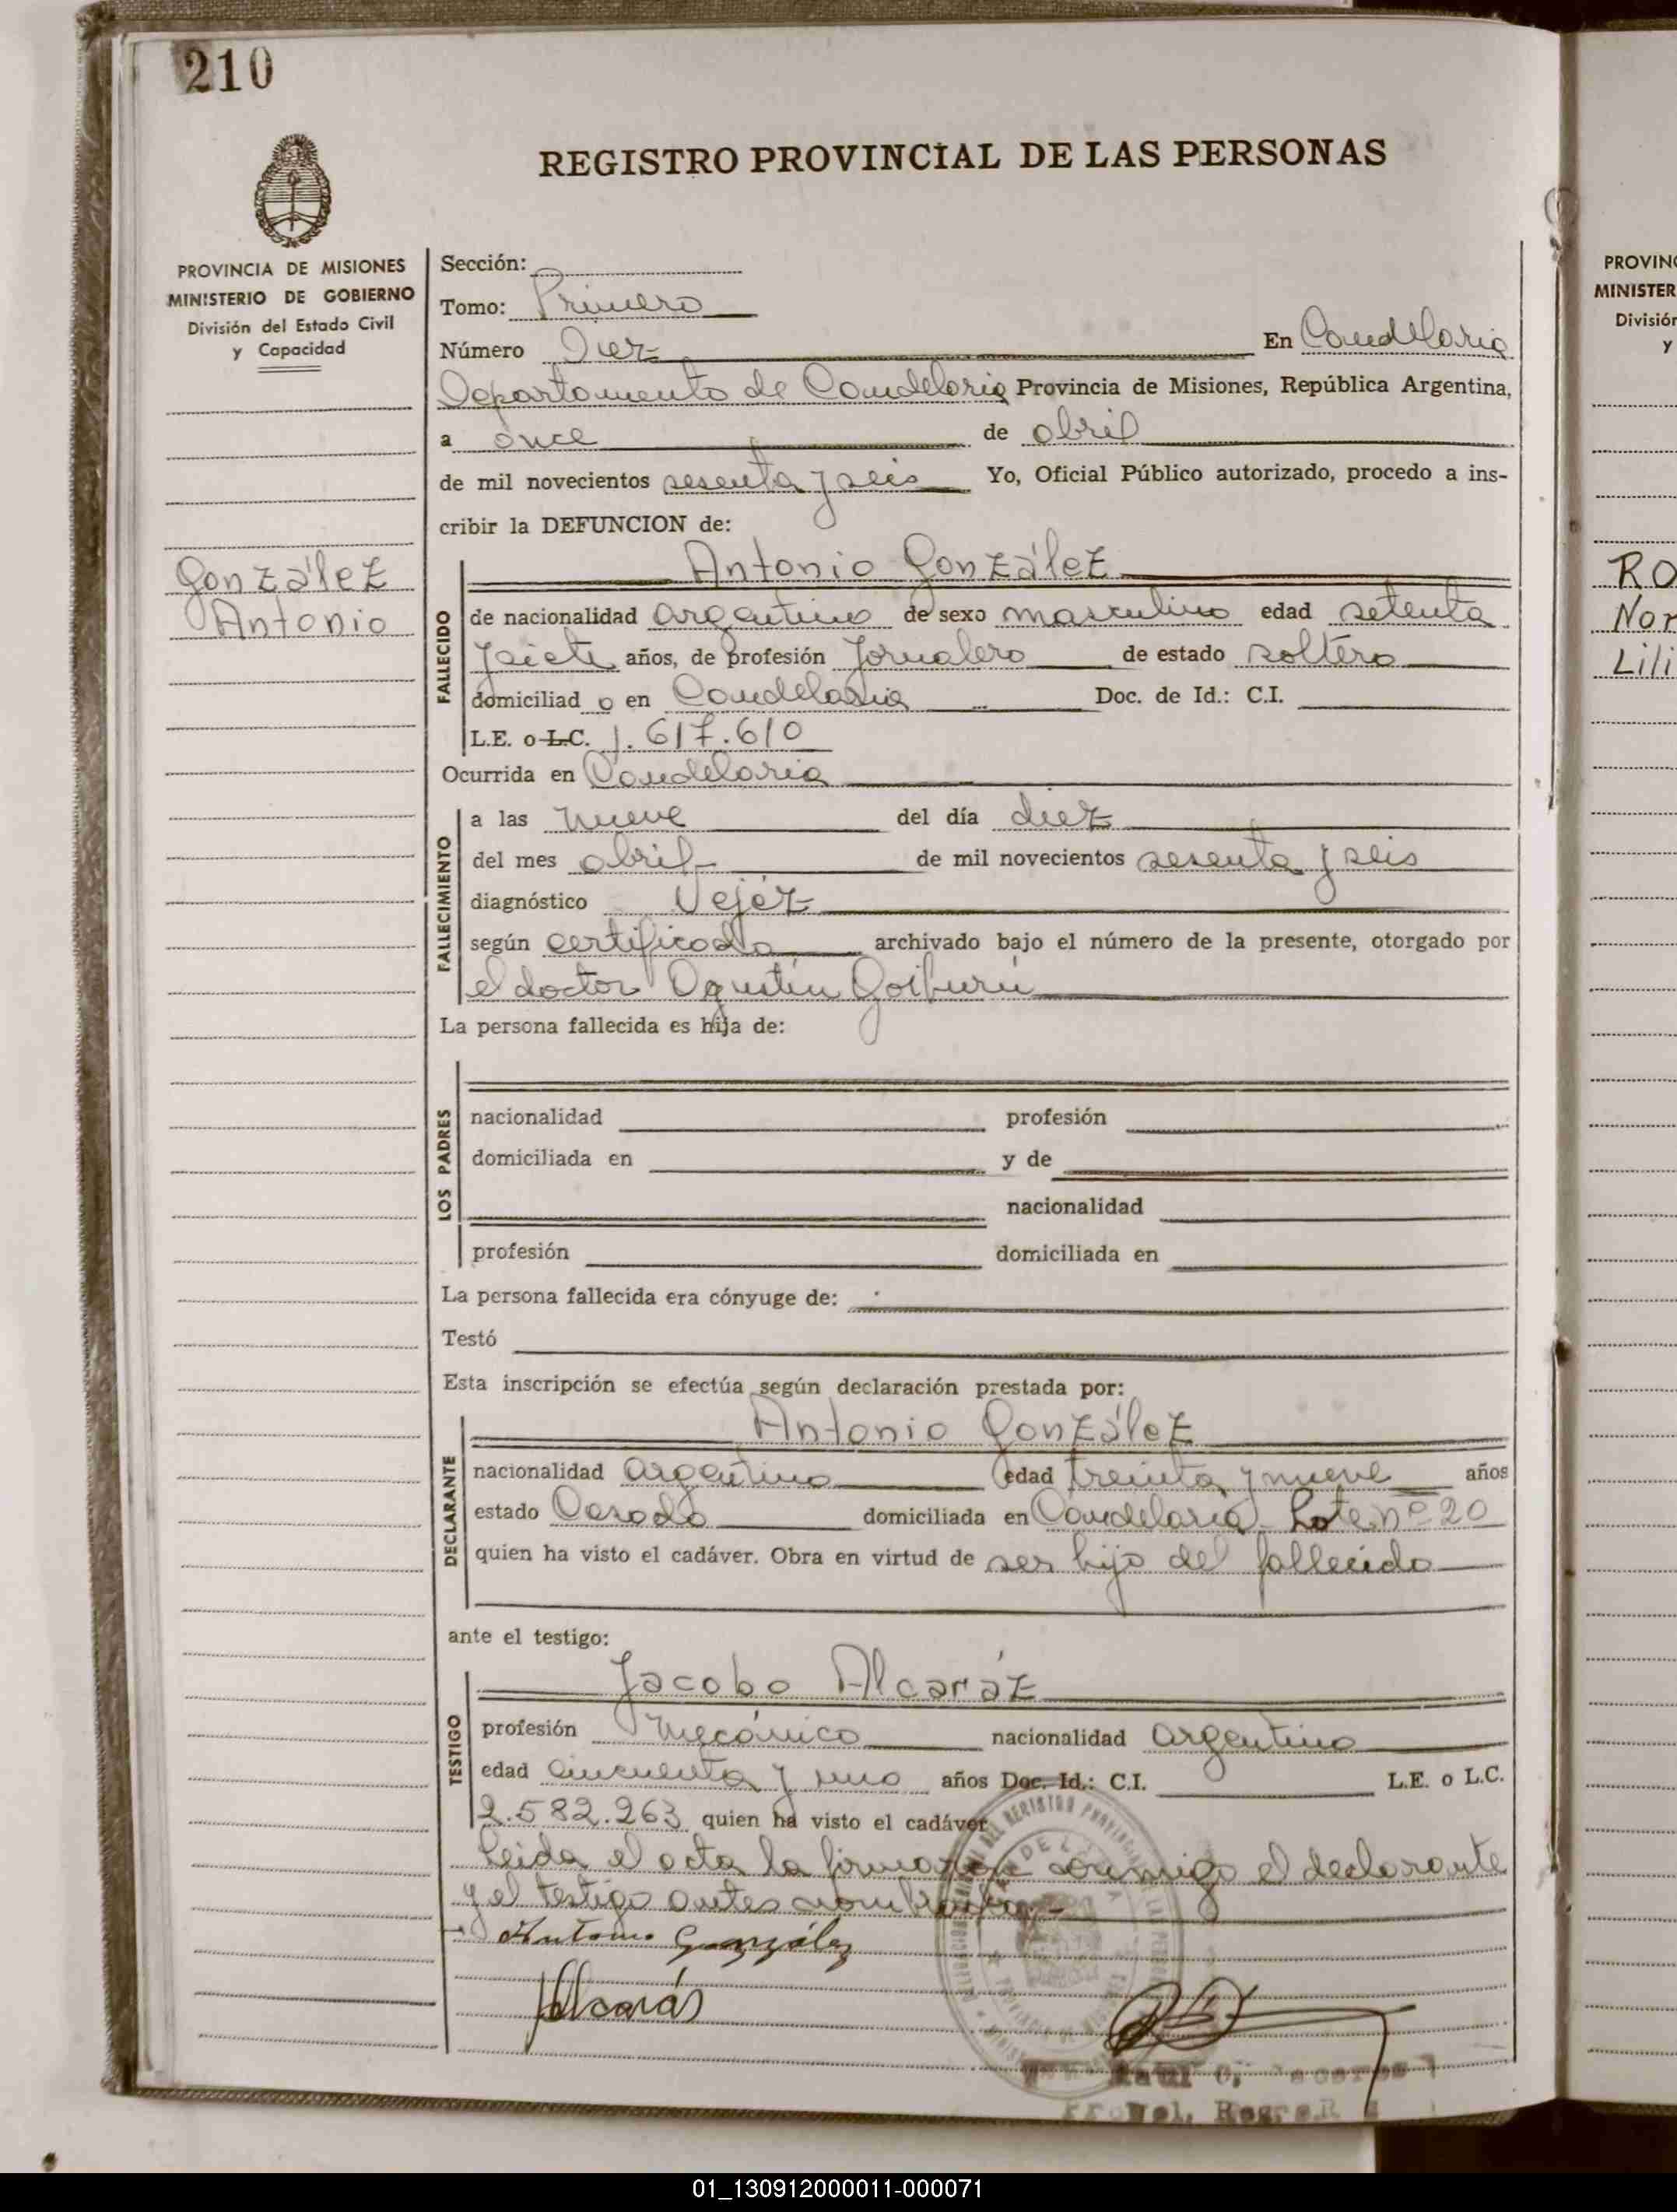 210
REGISTRO PROVINCIAL DE LAS PERSONAS
PROVINCIA DE MISIONES
MINISTERIO DE GOBIERNO
División del Estado Civil
y Capacidad
González
Antonio
Sección:
Tomo: Primero
Número Diez En Candelaria
Departamento de Candelaria Provincia de Misiones, República Argentina,
a once de abril
de mil novecientos sesenta y seis Yo, Oficial Público autorizado, procedo a ins-
cribir la DEFUNCION de:
Antonio González
FALLECIDO
de nacionalidad argentino de sexo masculino edad setenta
y siete años, de profesión Jornalero de estado soltero
domiciliad o en Candelaria Doc. de Id.: C.I.
L.E. o L.C. 1.617.610
Ocurrida en Candelaria
FALLECIMIENTO
a las nueve del día diez
del mes abril de mil novecientos sesenta y seis
diagnóstico Vejéz
según certificado archivado bajo el número de la presente, otorgado por
el doctor Agustín Goiburú
La persona fallecida es hija de:
LOS PADRES
nacionalidad profesión
domiciliada en y de
nacionalidad
profesión domiciliada en
La persona fallecida era cónyuge de:
Testó
Esta inscripción se efectúa según declaración prestada por:
Antonio González
DECLARANTE
nacionalidad argentino edad treinta y nueve años
estado Casado domiciliada en Candelaria Lote nº 20
quien ha visto el cadáver. Obra en virtud de ser hijo del fallecido
ante el testigo:
Jacobo Alcaráz
TESTIGO
profesión Mecánico nacionalidad argentino
edad cincuenta y uno años Doc. Id.: C.I. L.E. o L.C.
2.582.263 quien ha visto el cadáver
Leida el acta la firmaron conmigo el declarante
y el testigo antes nombrados
Antonio González
JAlcarás
Raul
PROVIN
MINISTER
División
y
RO
Nor
Lili
01_130912000011-000071